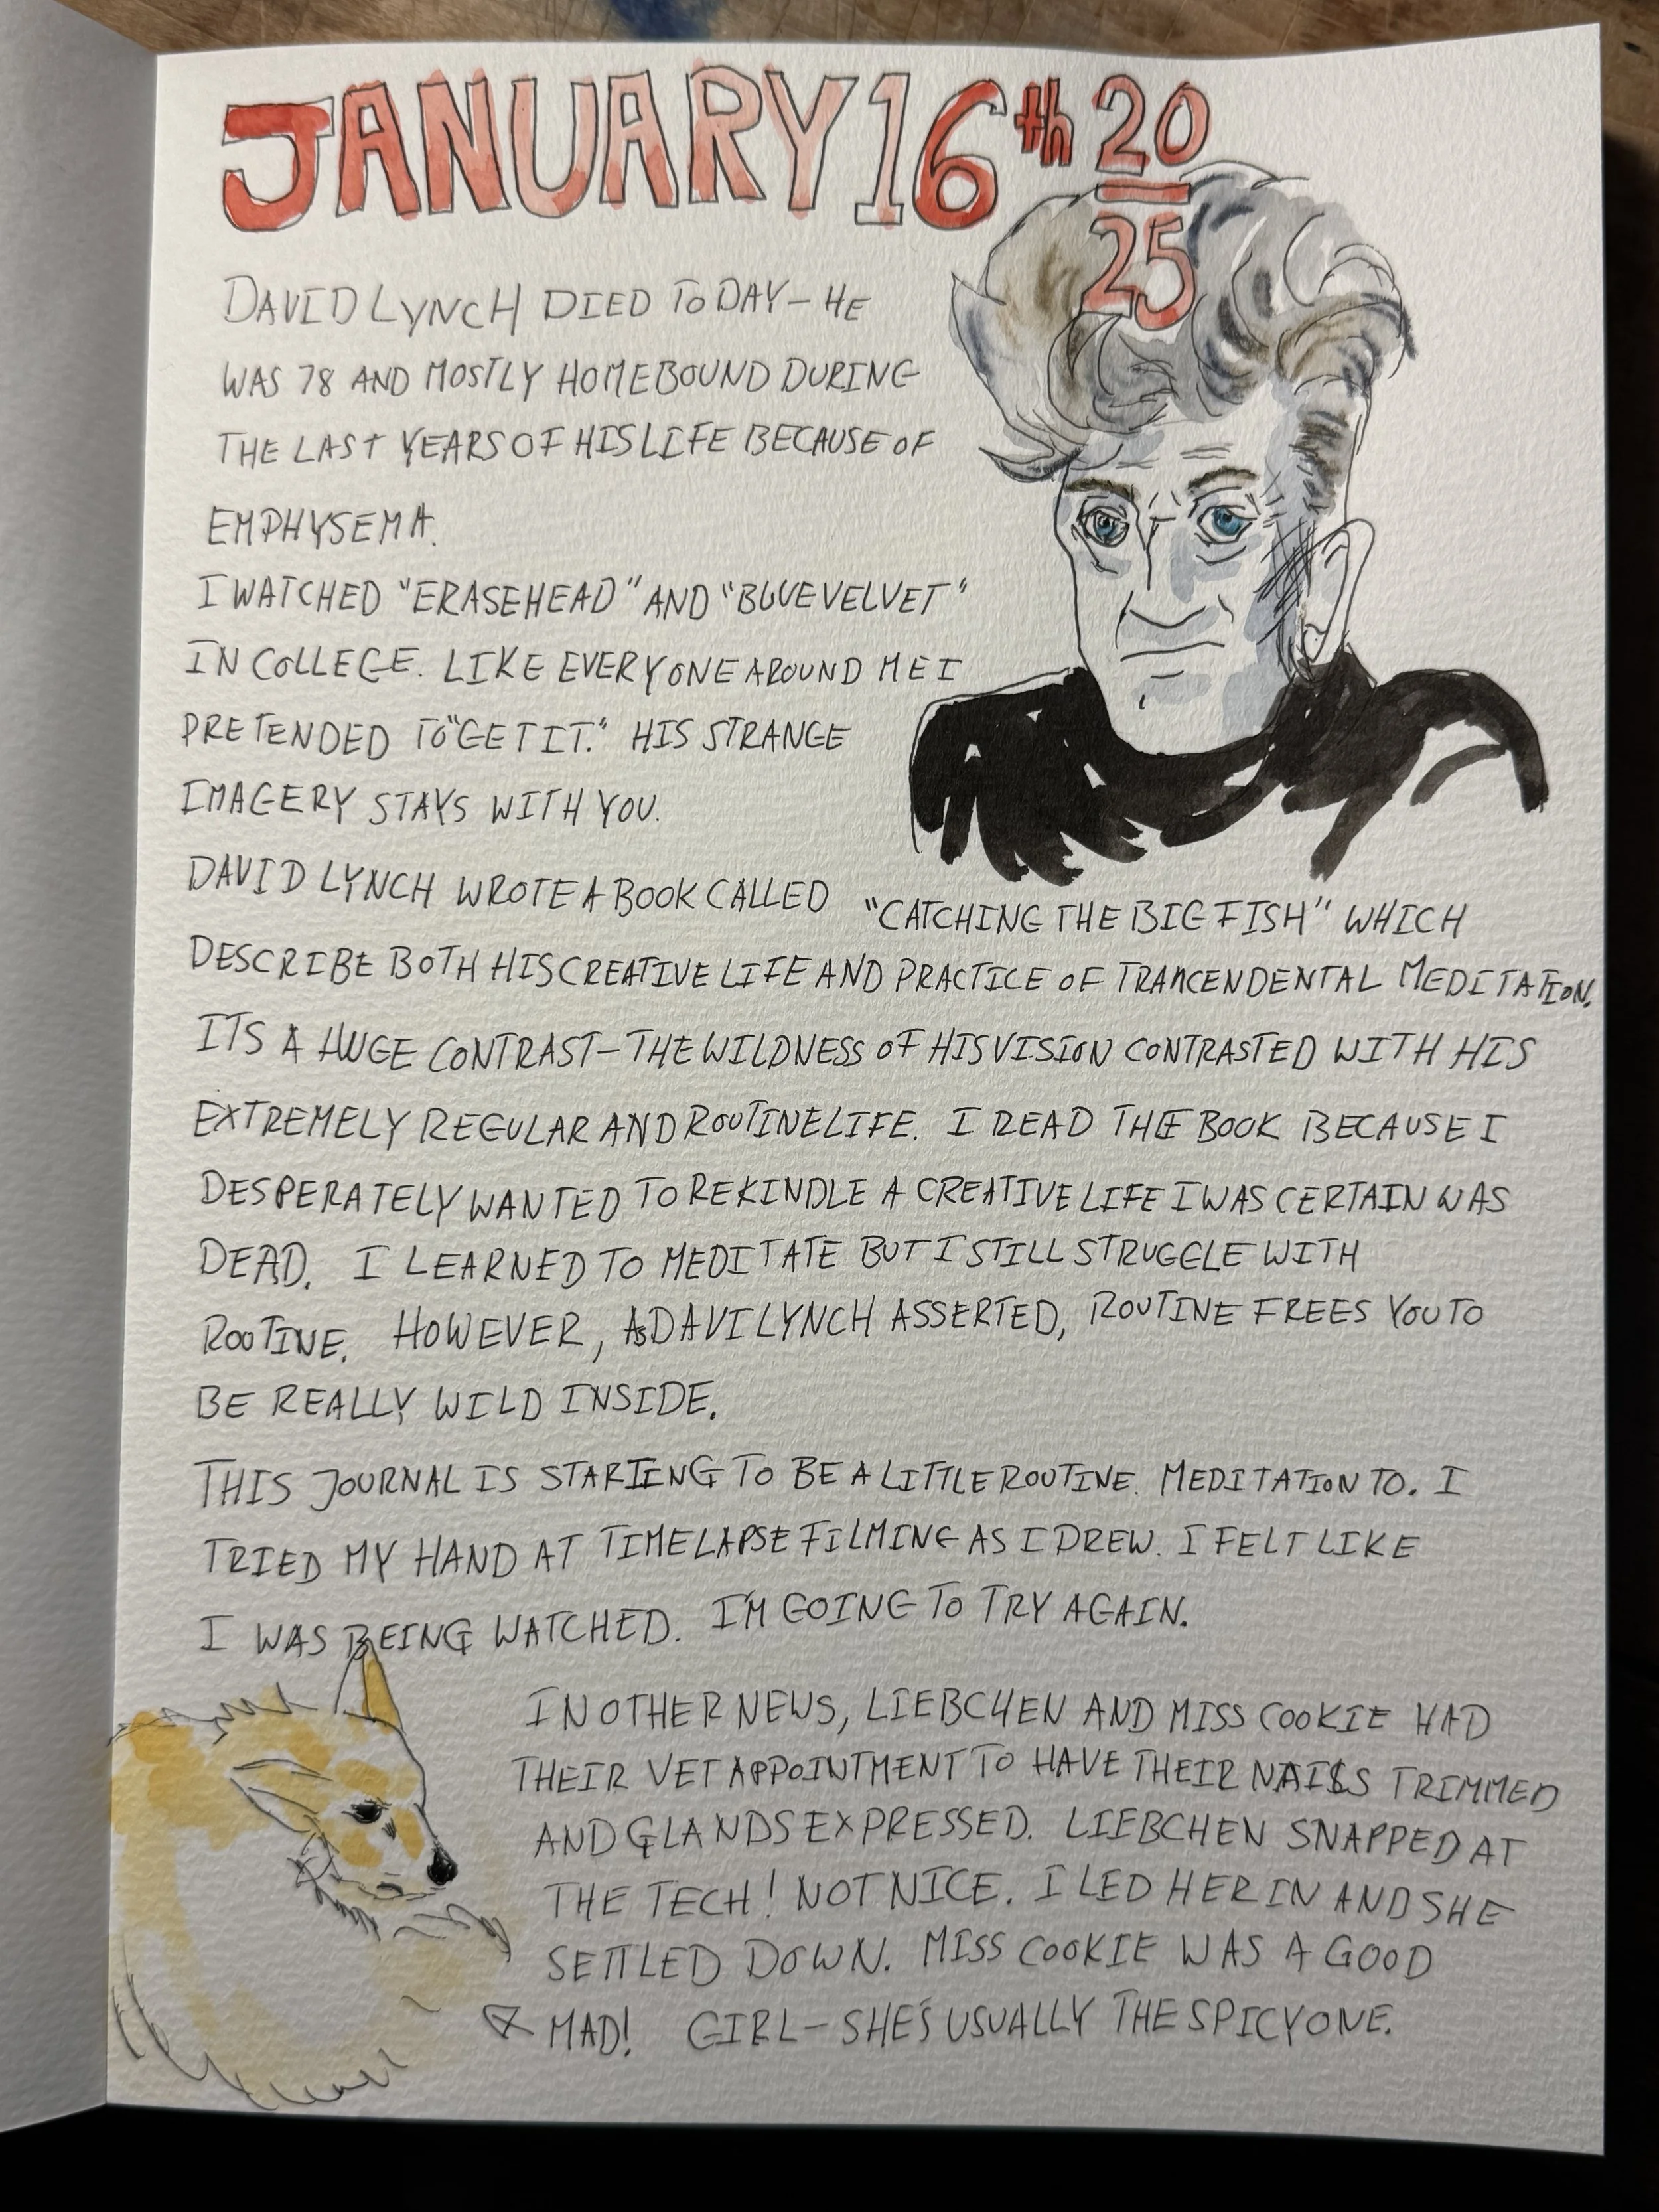 JANUARY 16th 20
25
DAVID LYNCH DIED TODAY – HE
WAS 78 AND MOSTLY HOMEBOUND DURING
THE LAST YEARS OF HIS LIFE BECAUSE OF
EMPHYSEMA.
I WATCHED "ERASEHEAD" AND "BLUE VELVET"
IN COLLEGE. LIKE EVERYONE AROUND ME I
PRETENDED TO "GET IT." HIS STRANGE
IMAGERY STAYS WITH YOU.
DAVID LYNCH WROTE A BOOK CALLED "CATCHING THE BIG FISH" WHICH
DESCRIBE BOTH HIS CREATIVE LIFE AND PRACTICE OF TRANCENDENTAL MEDITATION.
ITS A HUGE CONTRAST – THE WILDNESS OF HIS VISION CONTRASTED WITH HIS
EXTREMELY REGULAR AND ROUTINE LIFE. I READ THE BOOK BECAUSE I
DESPERATELY WANTED TO REKINDLE A CREATIVE LIFE I WAS CERTAIN WAS
DEAD. I LEARNED TO MEDITATE BUT I STILL STRUGGLE WITH
ROUTINE. HOWEVER, AS DAVI LYNCH ASSERTED, ROUTINE FREES YOU TO
BE REALLY WILD INSIDE.
THIS JOURNAL IS STARTING TO BE A LITTLE ROUTINE. MEDITATION TO. I
TRIED MY HAND AT TIMELAPSE FILMING AS I DREW. I FELT LIKE
I WAS BEING WATCHED. I'M GOING TO TRY AGAIN.
IN OTHER NEWS, LIEBCHEN AND MISS COOKIE HAD
THEIR VET APPOINTMENT TO HAVE THEIR NAILS TRIMMED
AND GLANDS EXPRESSED. LIEBCHEN SNAPPED AT
THE TECH! NOT NICE. I LED HER IN AND SHE
SETTLED DOWN. MISS COOKIE WAS A GOOD
MAD! GIRL – SHE'S USUALLY THE SPICY ONE.